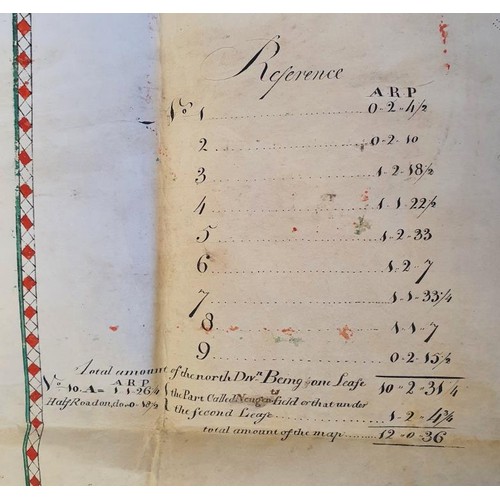 Reference
A R P
No. 1 0-2-4½
2 0-2-10
3 1-2-18½
4 1-1-22½
5 1-2-33
6 1-2-7
7 1-1-33¼
8 1-1-7
9 0-2-15½
total amount of the north Divn. Being one Lease 10-2-31¼
A R P
No. 10. A = 1-1-26¼
Half Road on do.
the Part Called Field or that under
the Second Lease 1-2-4¾
total amount of the map 12-0-36